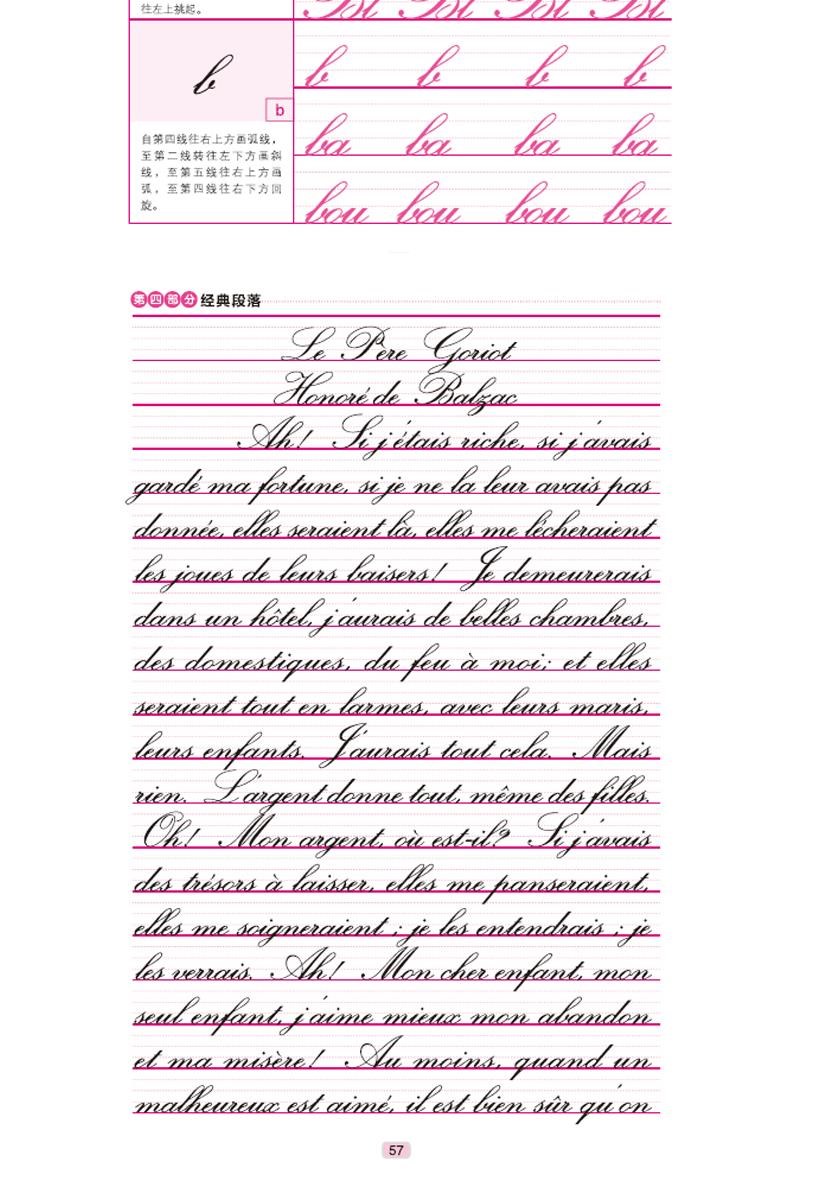 往左上挑起。
Bl Bl Bl Bl
b b b b b
b
自第四线往右上方画弧线，
至第二线转往左下方画斜
线，至第五线往右上方画
弧，至第四线往右下方回
旋。
ba ba ba ba
bou bou bou bou
第四部分 经典段落
Le Père Goriot
Honoré de Balzac
Ah! Si j'étais riche, si j'avais
gardé ma fortune, si je ne la leur avais pas
donnée, elles seraient là, elles me lécheraient
les joues de leurs baisers! Je demeurerais
dans un hôtel, j'aurais de belles chambres,
des domestiques, du feu à moi; et elles
seraient tout en larmes, avec leurs maris,
leurs enfants. J'aurais tout cela. Mais
rien. L'argent donne tout, même des filles.
Oh! Mon argent, où est-il? Si j'avais
des trésors à laisser, elles me panseraient,
elles me soigneraient ; je les entendrais ; je
les verrais. Ah! Mon cher enfant, mon
seul enfant, j'aime mieux mon abandon
et ma misère! Au moins, quand un
malheureux est aimé, il est bien sûr qu'on
57